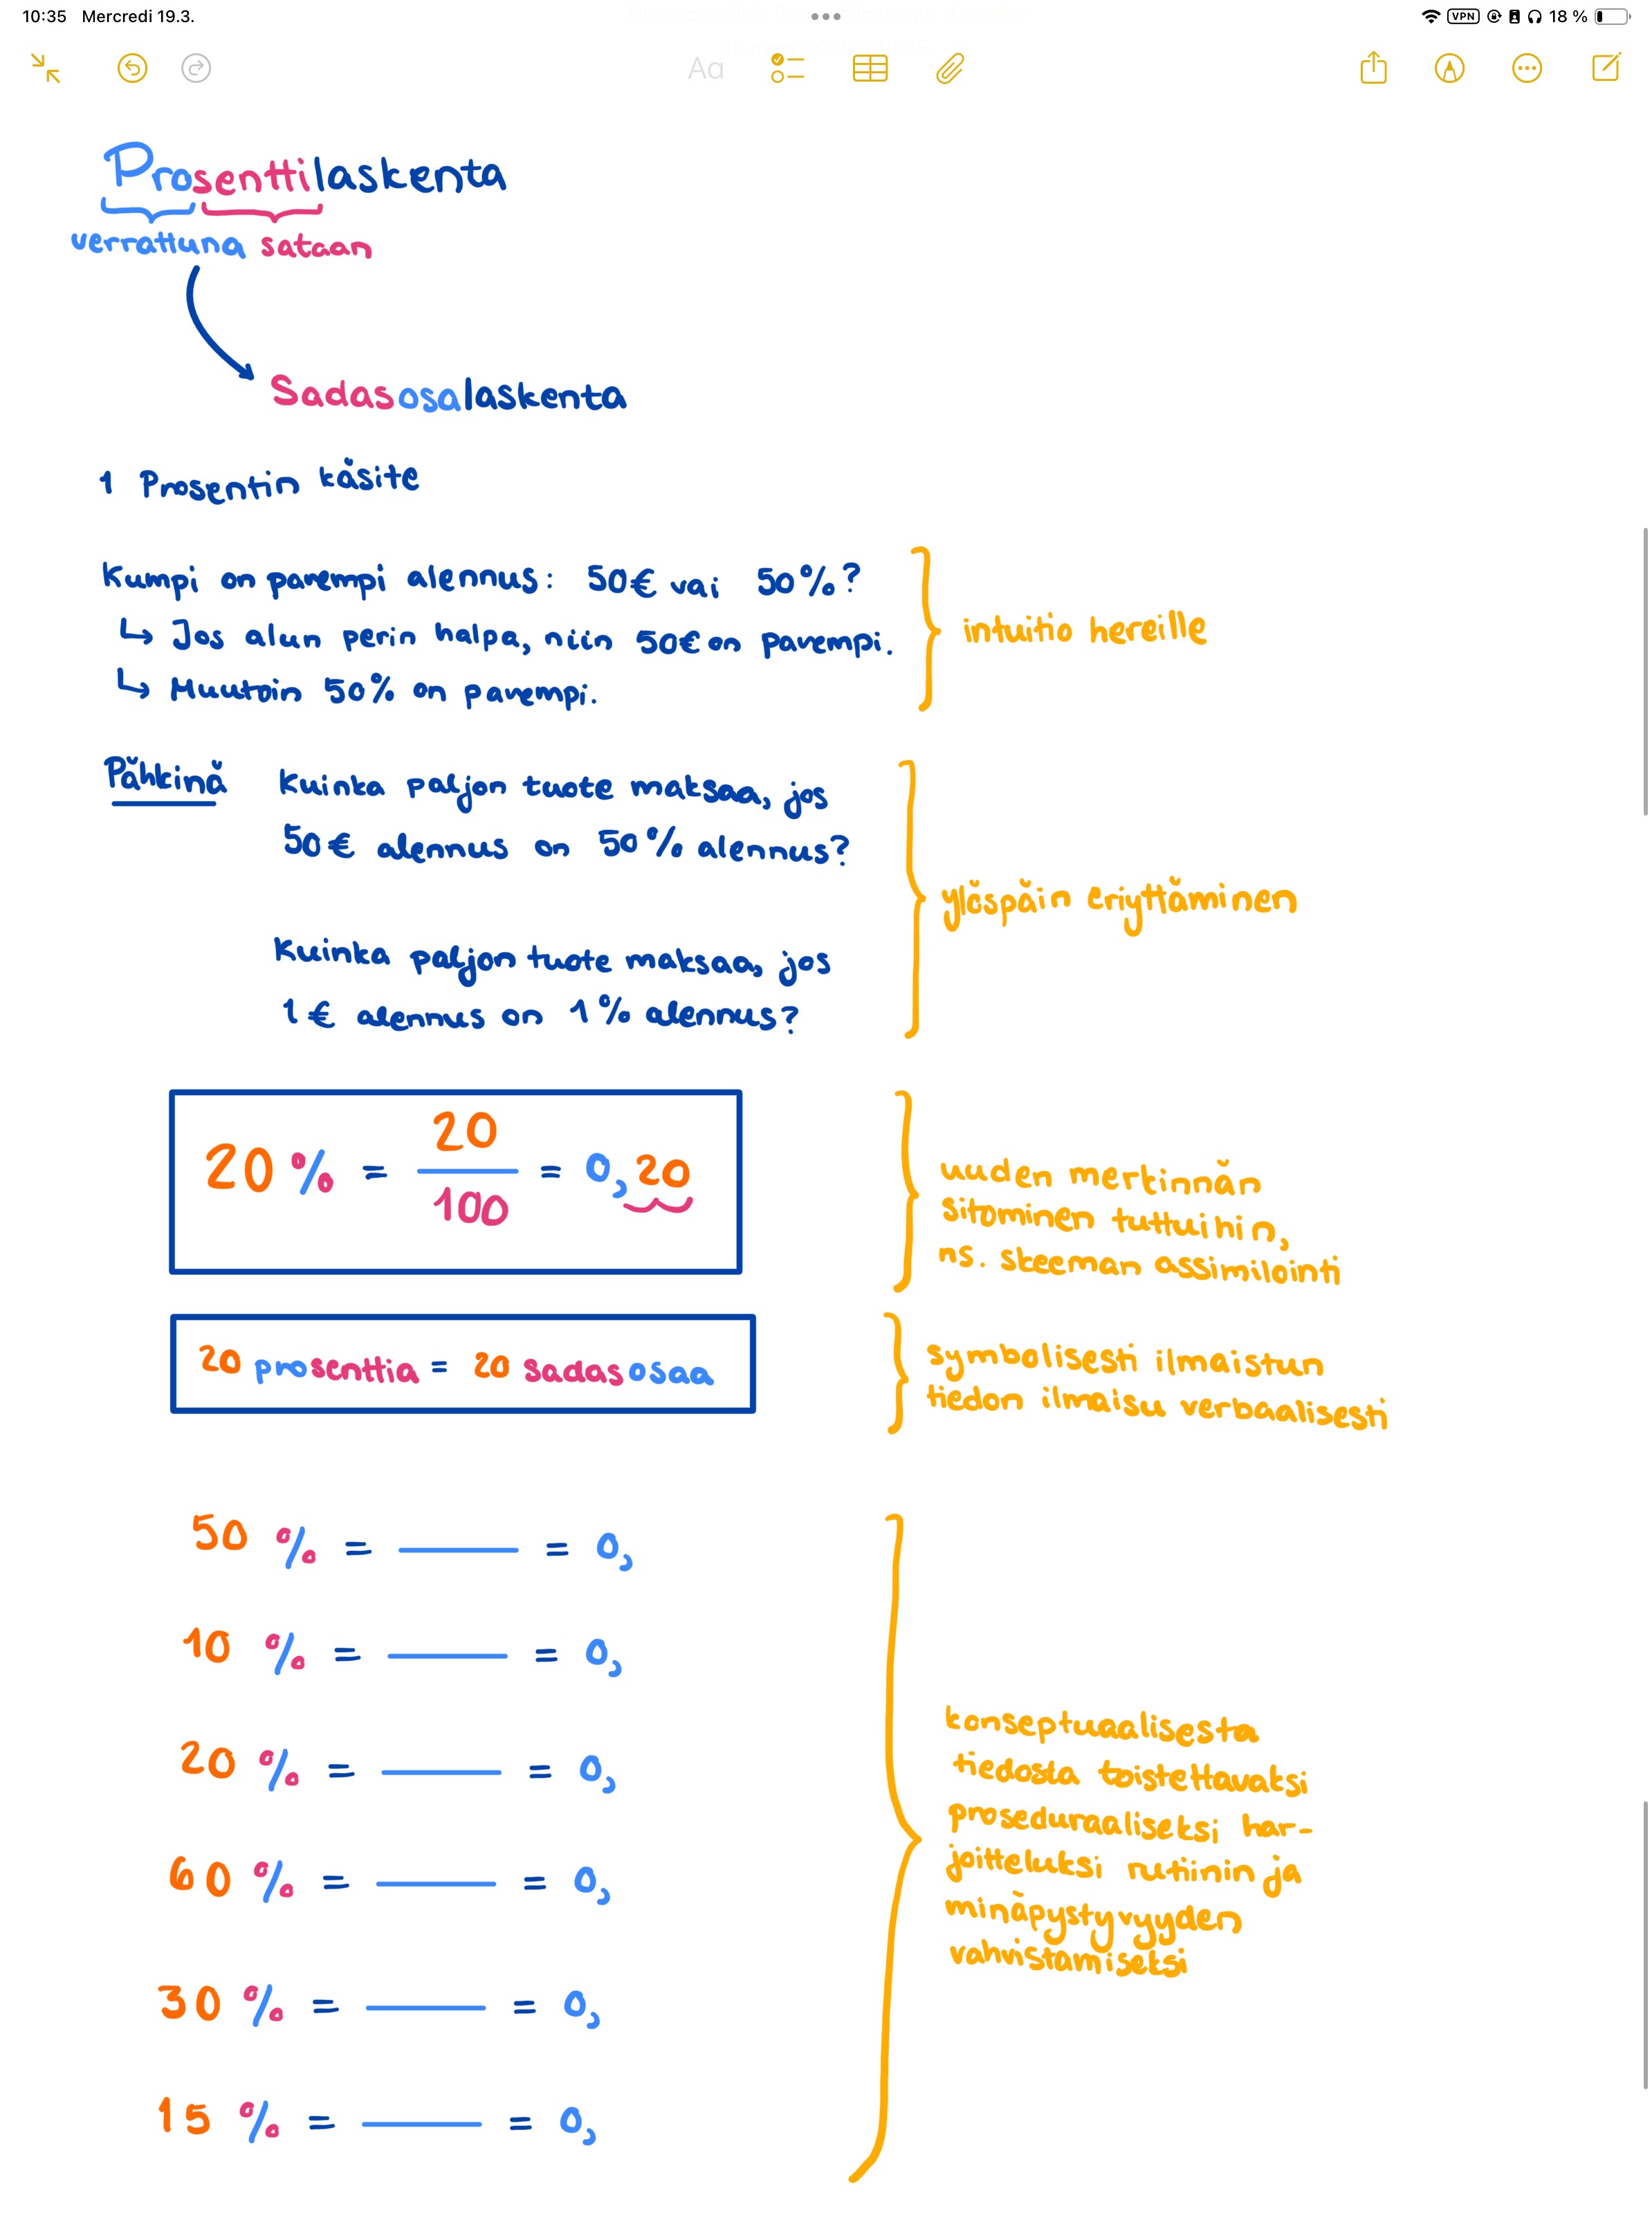 10:35 Mercredi 19.3.
VPN 18 %
Aa
Prosenttilaskenta
verrattuna sataan
Sadasosalaskenta
1 Prosentin käsite
Kumpi on parempi alennus: 50€ vai 50%?
↳ Jos alun perin halpa, niin 50€ on parempi.
↳ Muutoin 50% on parempi.
intuitio hereille
Pähkinä Kuinka paljon tuote maksaa, jos
50€ alennus on 50% alennus?
Kuinka paljon tuote maksaa, jos
1€ alennus on 1% alennus?
ylöspäin eriyttäminen
20 % = 20/100 = 0,20
uuden merkinnän
sitominen tuttuihin,
ns. skeeman assimilointi
20 prosenttia = 20 sadasosaa
symbolisesti ilmaistun
tiedon ilmaisu verbaalisesti
50 % = —— = 0,
10 % = —— = 0,
20 % = —— = 0,
60 % = —— = 0,
30 % = —— = 0,
15 % = —— = 0,
konseptuaalisesta
tiedosta toistettavaksi
proseduraaliseksi har-
joitteluksi rutiinin ja
minäpystyvyyden
vahvistamiseksi